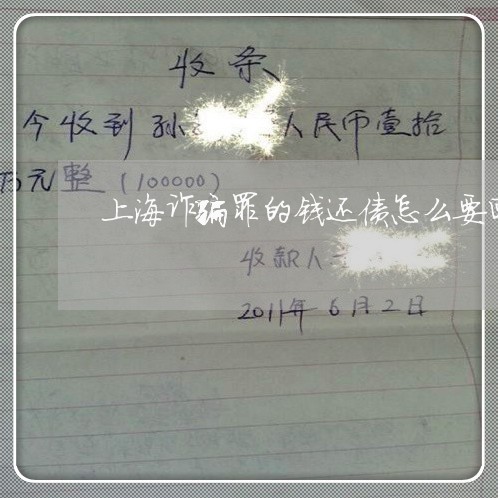 收条
今收到孙 人民币壹拾
万元整(100000)
上海诈骗罪的钱还债怎么要
收款人
2011年6月2日